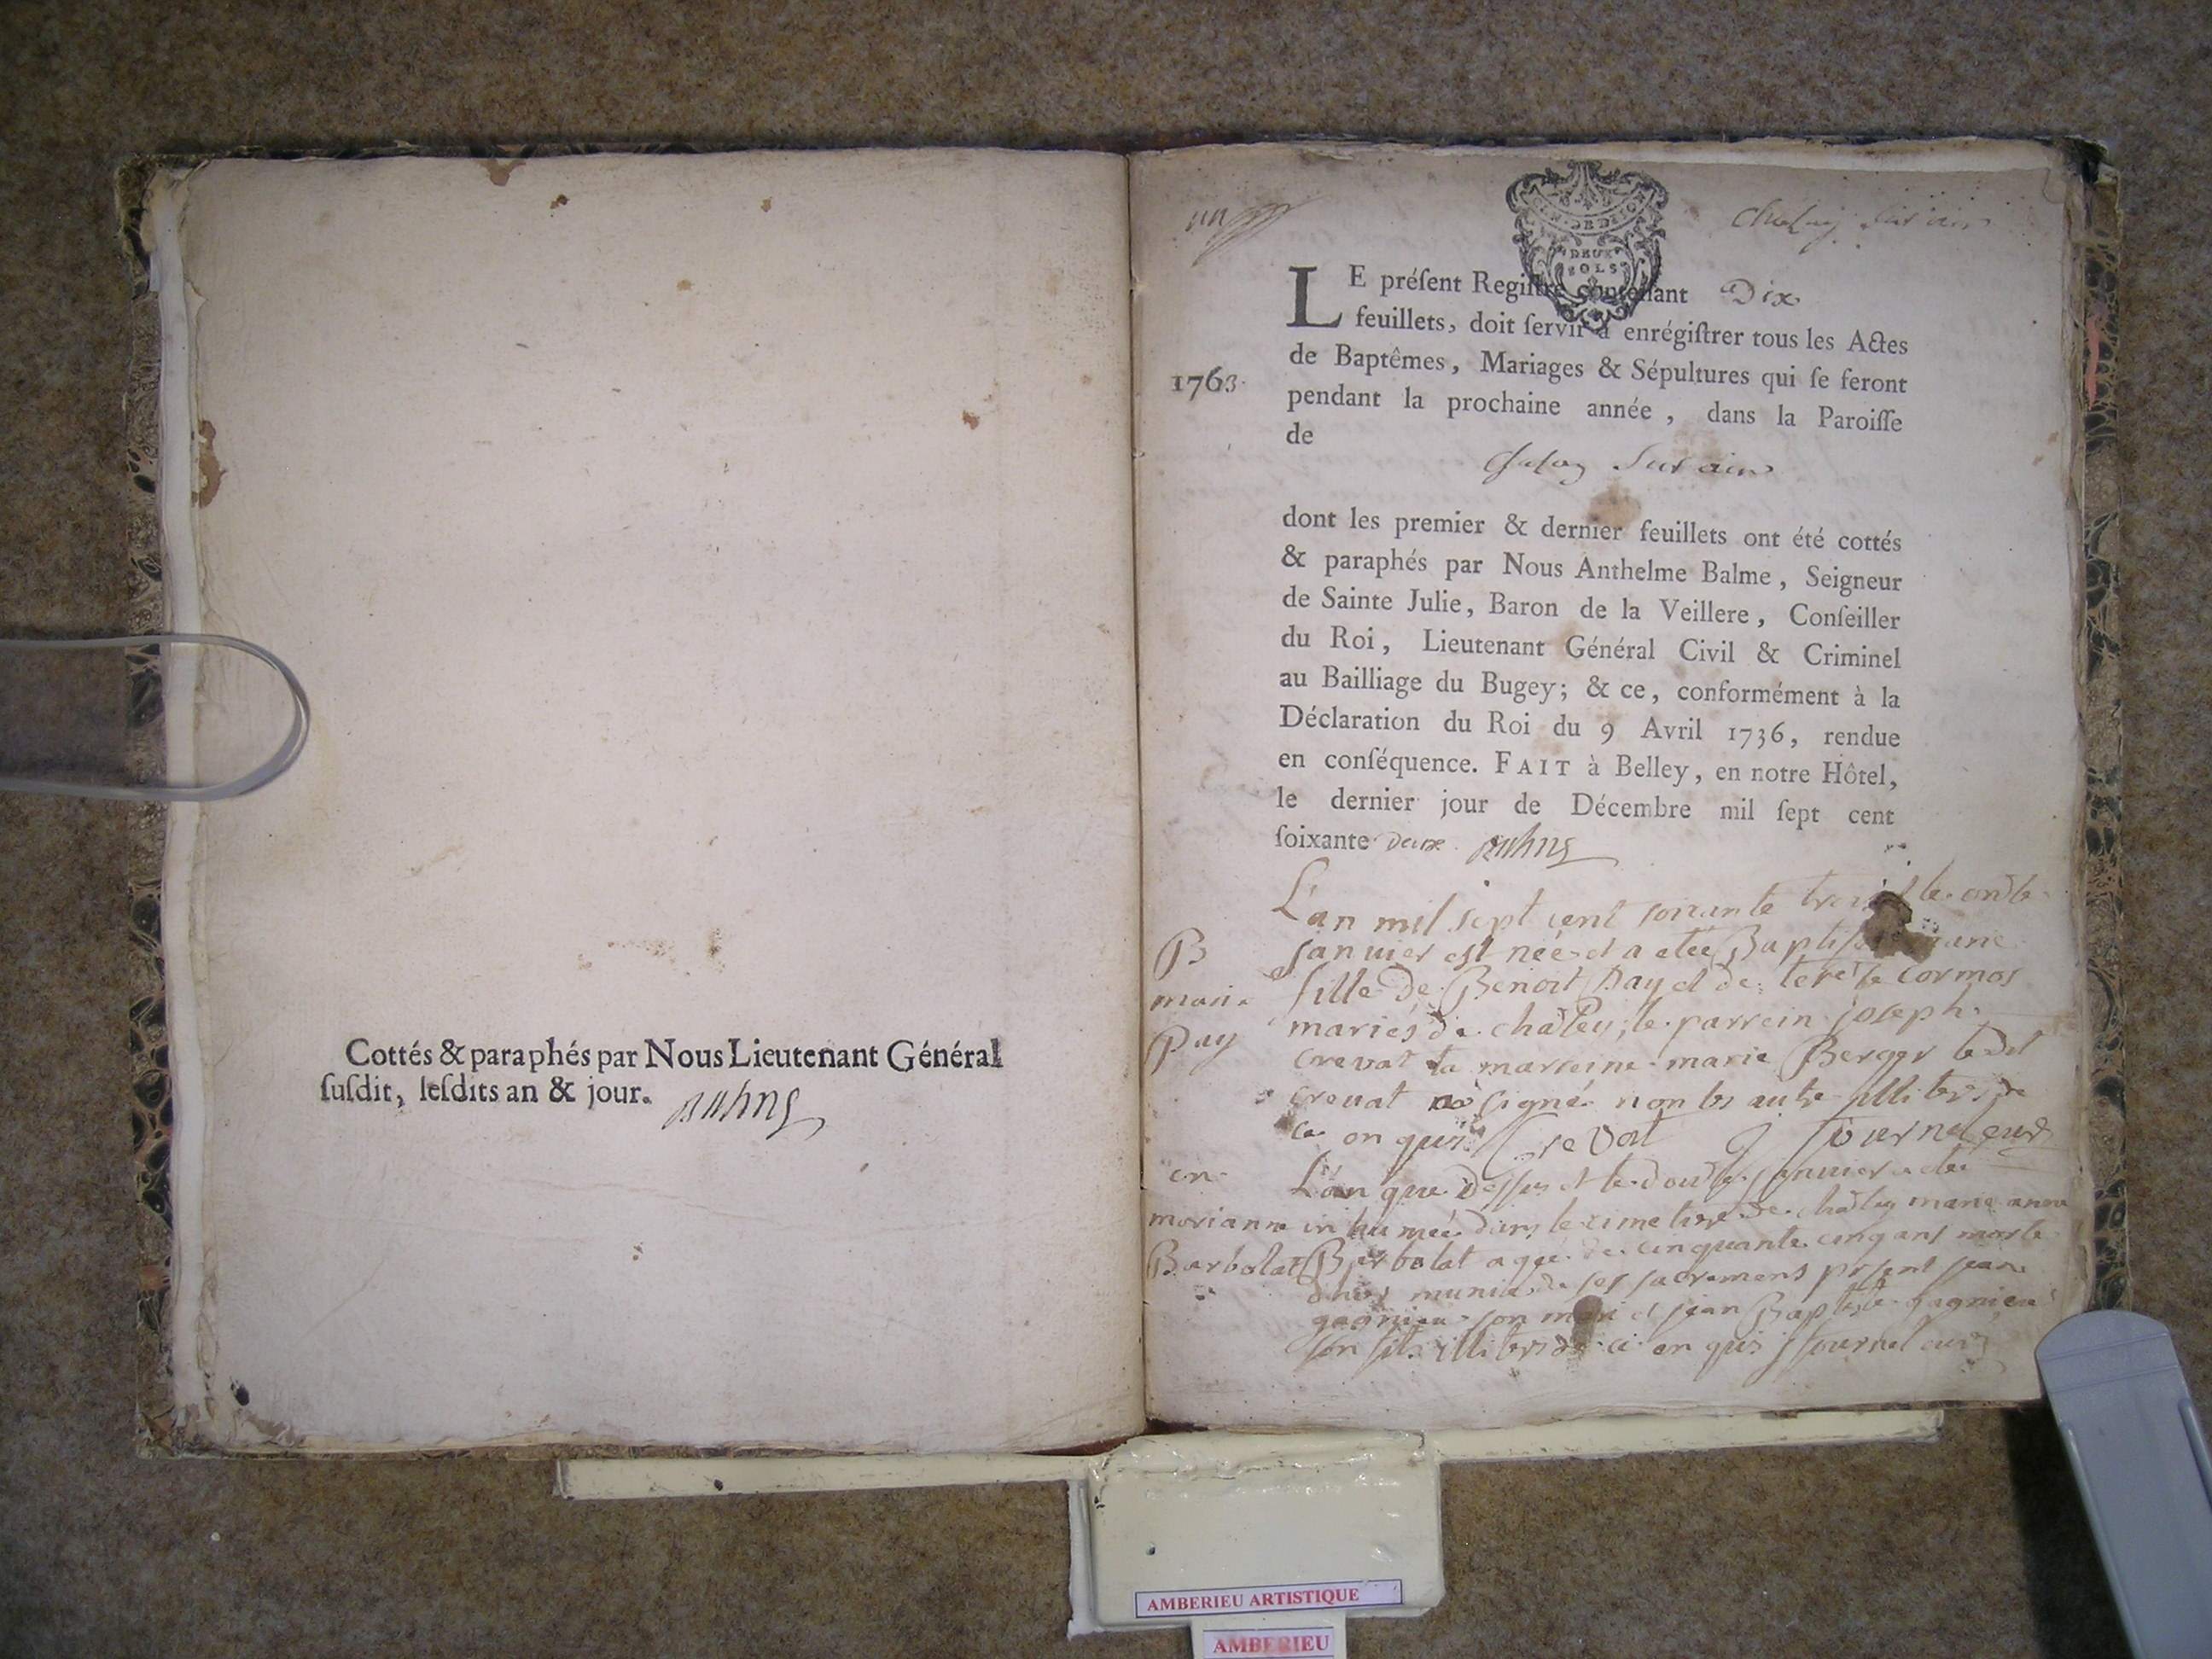 Cottés & paraphés par Nous Lieutenant Général
ſuſdit, leſdits an & jour.
un
DEUX
SOLS
LE préſent Regiſtre contenant Dix
feuillets, doit ſervir à enrégiſtrer tous les Actes
de Baptêmes, Mariages & Sépultures qui ſe feront
1763
pendant la prochaine année, dans la Paroiſſe
de
Sur ain
dont les premier & dernier feuillets ont été cottés
& paraphés par Nous Anthelme Balme, Seigneur
de Sainte Julie, Baron de la Veillere, Conſeiller
du Roi, Lieutenant Général Civil & Criminel
au Bailliage du Bugey; & ce, conformément à la
Déclaration du Roi du 9 Avril 1736, rendue
en conſéquence. FAIT à Belley, en notre Hôtel,
le dernier jour de Décembre mil ſept cent
ſoixante deux
L'an mil sept cent soixante trois le onze
B
janvier est née et a etée
marie
fille de Benoit Puy et de cormos
Puy
mariés de le parrein joseph
crevat la marreine marie Berger le dit
crevat a signé non les autre de
ce enquis Crevat J tournel curé
en
L'an que dessus et le douze janvier a été
morianne
inhumée dans le cimetire de marie anne
Barbolat
Barbolat agée de cinquante cinq ans morte
munie de ses sacremens present jean
gagnieu son mari et jean Baptiste gagnieu
son fils de ce enquis J tournel curé
AMBERIEU ARTISTIQUE
AMBERIEU